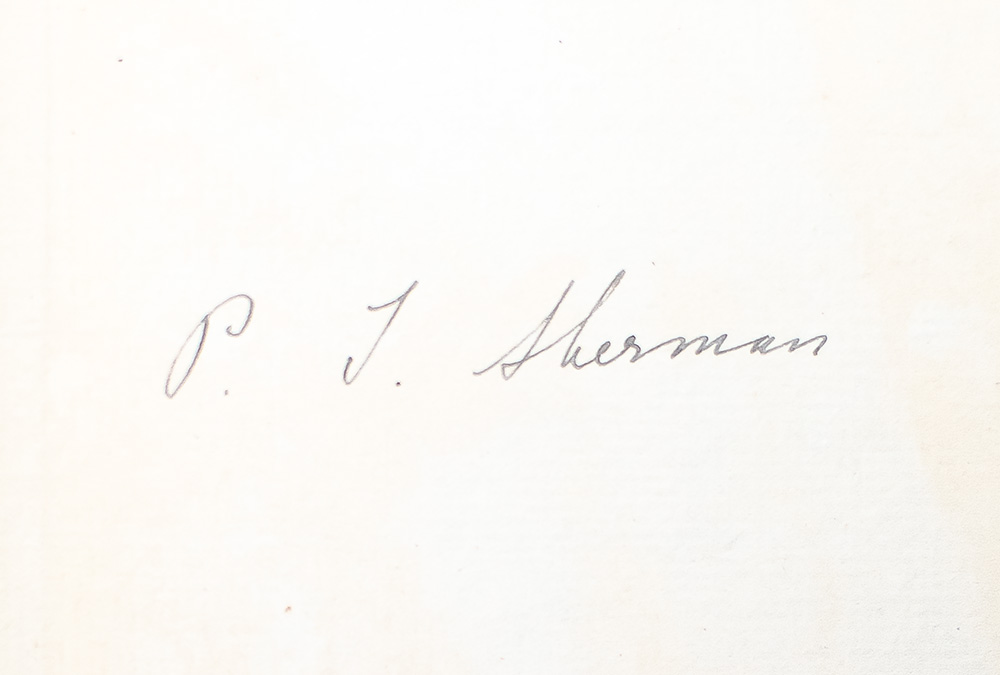 P. T. Sherman